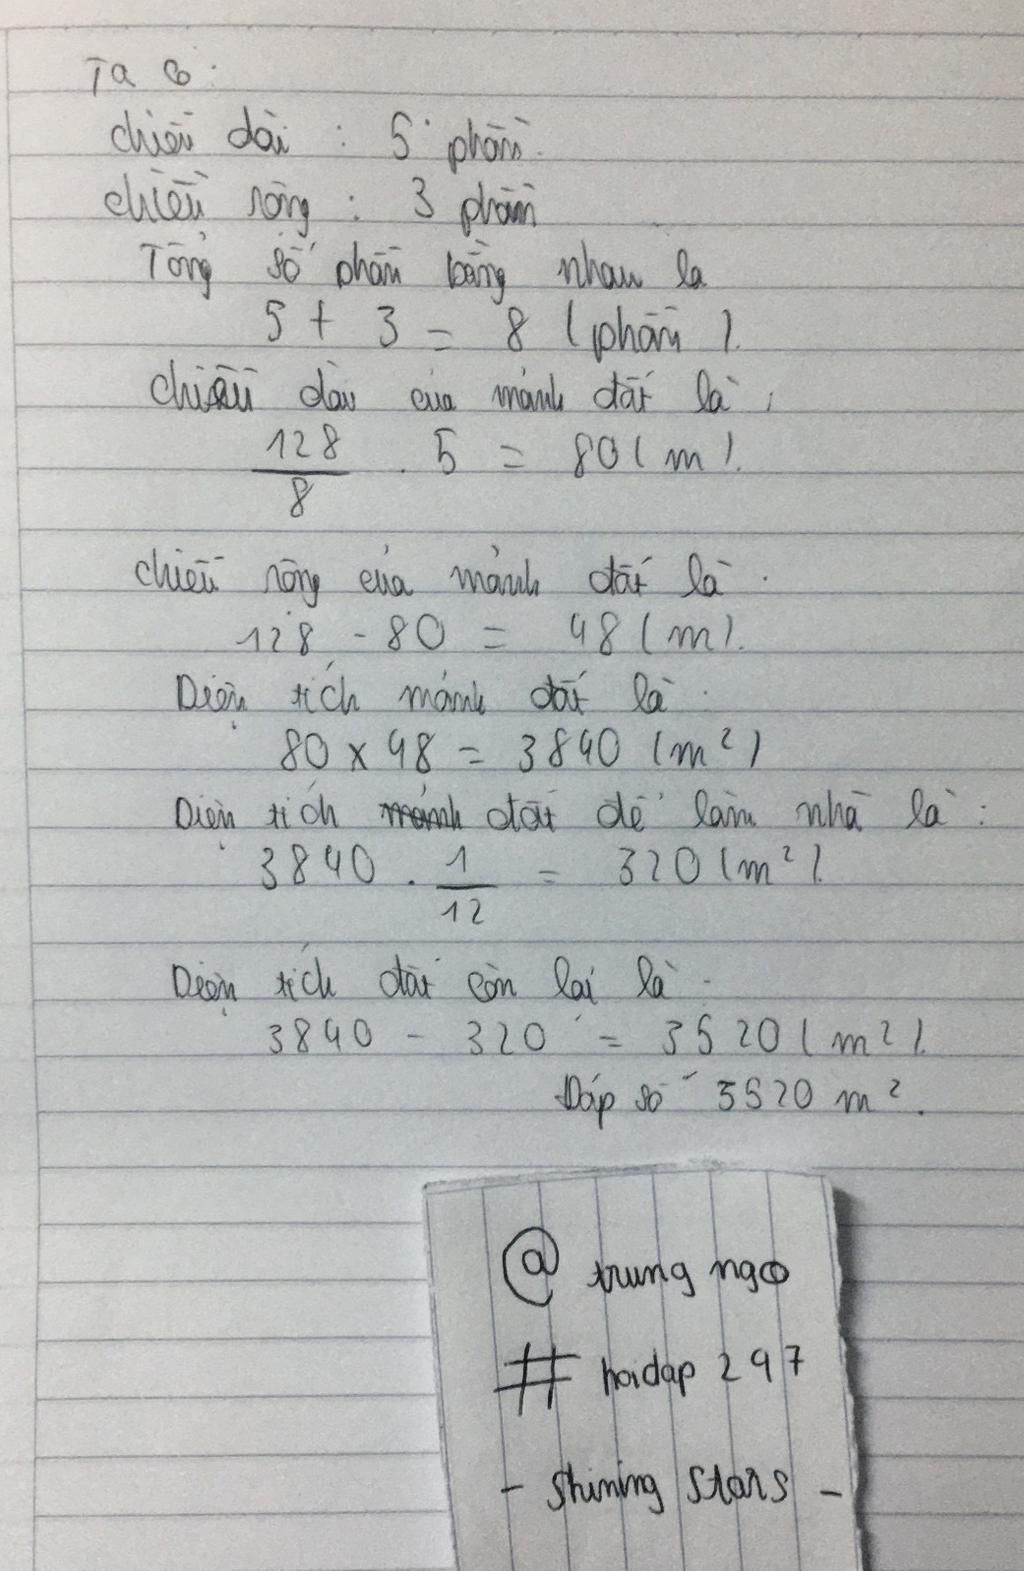 Ta có:
chiều dài : 5 phần.
chiều rộng : 3 phần
Tổng số phần bằng nhau là
5 + 3 = 8 (phần).
chiều dài của mảnh đất là:
128/8 . 5 = 80 (m).
chiều rộng của mảnh đất là:
128 - 80 = 48 (m).
Diện tích mảnh đất là:
80 x 48 = 3840 (m²)
Diện tích đất để làm nhà là:
3840 . 1/12 = 320 (m²).
Diện tích đất còn lại là:
3840 - 320 = 3520 (m²).
Đáp số 3520 m².
@ trung ngo
# hoidap 247
- Shining Stars -